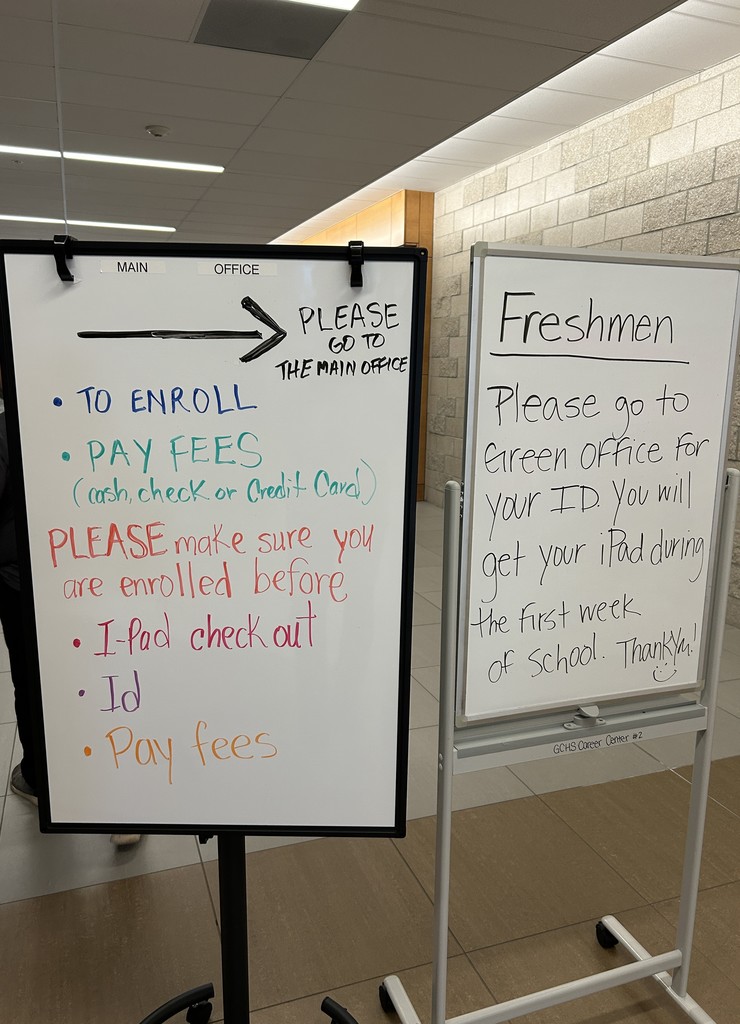 MAIN OFFICE
PLEASE
GO TO
THE MAIN OFFICE
• TO ENROLL
• PAY FEES
(cash, check or Credit Card)
PLEASE make sure you
are enrolled before
• I-Pad check out
• Id
• Pay fees
Freshmen
Please go to
Green Office for
your ID. You will
get your iPad during
the first week
of school. Thank You!
GCHS Career Center #2